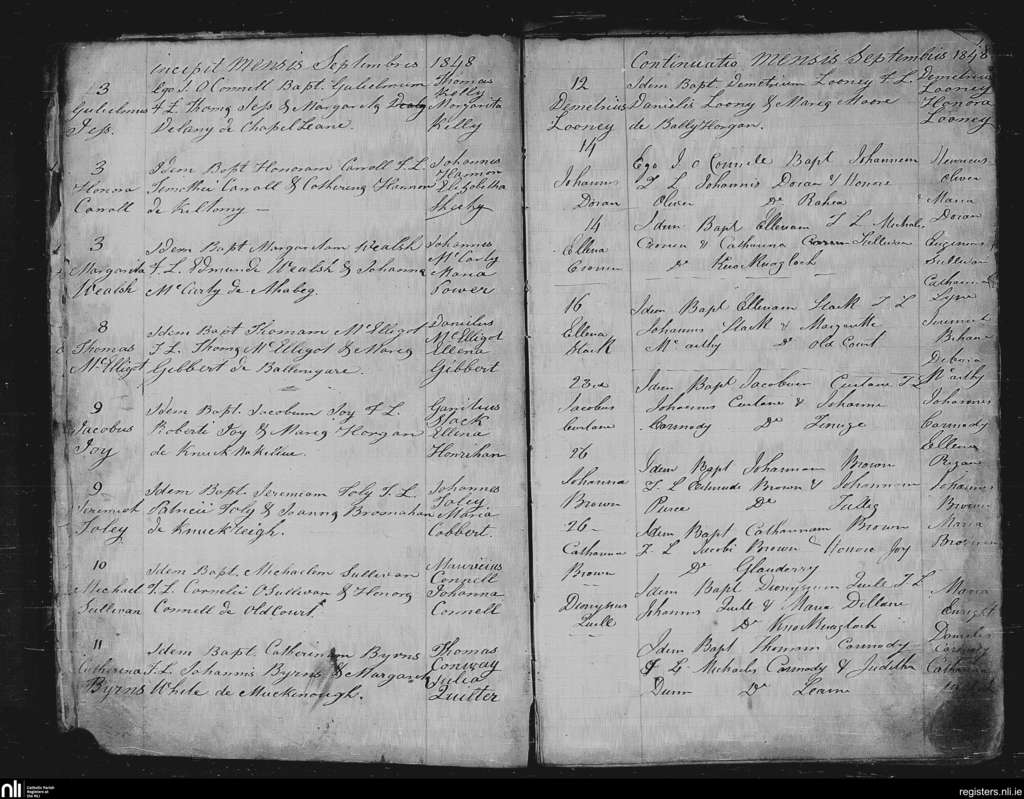 incipit Mensis Septembris 1848
3 Ego J. O Connell Bapt. Gulielmum Thomas Kelly
Gulielmus F L Thomæ Jess & Margaretæ Margarita
Jess. Delany de Chapel Leane. Kelly
3 Idem Bapt Honoram Carroll F. L. Johannes Hannon
Honora Timothei Carroll & Catherinæ Hannon Elizabetha
Carroll de Kiltomy — Shehy
3 Idem Bapt Margaritam Wealsh Johannes
Margarita F. L. Edmundi Wealsh & Johannæ McCarty Maria
Wealsh McCarty de Ahabeg. Power
8 Idem Bapt Thomam McElligot Danielus McElligot
Thomas F. L. Thomæ McElligot & Mariæ Ellena
McElligot Gibbert de Ballengare. Gibbert
9 Idem Bapt. Jacobum Joy F. L. Slack
Jacobus Roberti Joy & Mariæ Horgan Ellena
Joy de Hourihan
9 Idem Bapt. Jeremiam Foly F. L. Johannes Foley
Jeremiah Patricii Foly & Joannæ Brosnahan Maria
Foley de KnuckReigh. Cobbert.
10 Idem Bapt. Michaelem Sullivan Mauricius Connell
Michael F. L. Cornelii O'Sullivan & Honoræ Johanna
Sullivan Connell de Oldcourt. Connell
11 Idem Bapt Catherinam Byrns Thomas Conway
Catherina F. L. Johannis Byrns & Margaretæ Julia
Byrns White de Muckenough. Quilter
Continuatio Mensis Septembris 1848
12 Idem Bapt. Demetrium Looney F L Demetrius Looney
Demetrius Danielis Loony & Mariæ Moore Honora
Looney de BallyHorgan. Looney
14 Ego J. O Connell Bapt Johannem Henricus
Johannes F L Johannis Doran & Honore Oliver
Doran Oliver De Rahea Maria Doran
14 Idem Bapt Ellenam F L Michaelis
Ellena Cronin & Catharina Sullivan Eugenius Sullivan
Cronin De KnockRuagloch Catharina Lyne
16 Idem Bapt Ellenam Slack F L
Ellena Johannis Slack & Margarettæ
Slack McCarthy De Old Court McCarthy
23rd Idem Bapt Jacobum Curtane F L
Jacobus Johannis Curtane & Johannæ Johannes
Curtane Carmody De Finuge Carmody Ellena
26 Idem Bapt Johannam Brown
Johanna F. L Edmundi Brown & Johannam Johannes
Brown Pierce De Brown
26 Idem Bapt Catharinam Brown Maria
Catharina F L Jacobi Brown & Honore Joy
Brown De Glanderry
Idem Bapt Dionysium Quill F L Maria
Dionysius Johannis Quill & Maria Dillane Enright
Quill De KnockRuagloch
Idem Bapt Thomam Carmody Daniel Carmody
F L Michaelis Carmody & Judith Catharina
Dunn De Leam
nli Catholic Parish Registers at the NLI
registers.nli.ie